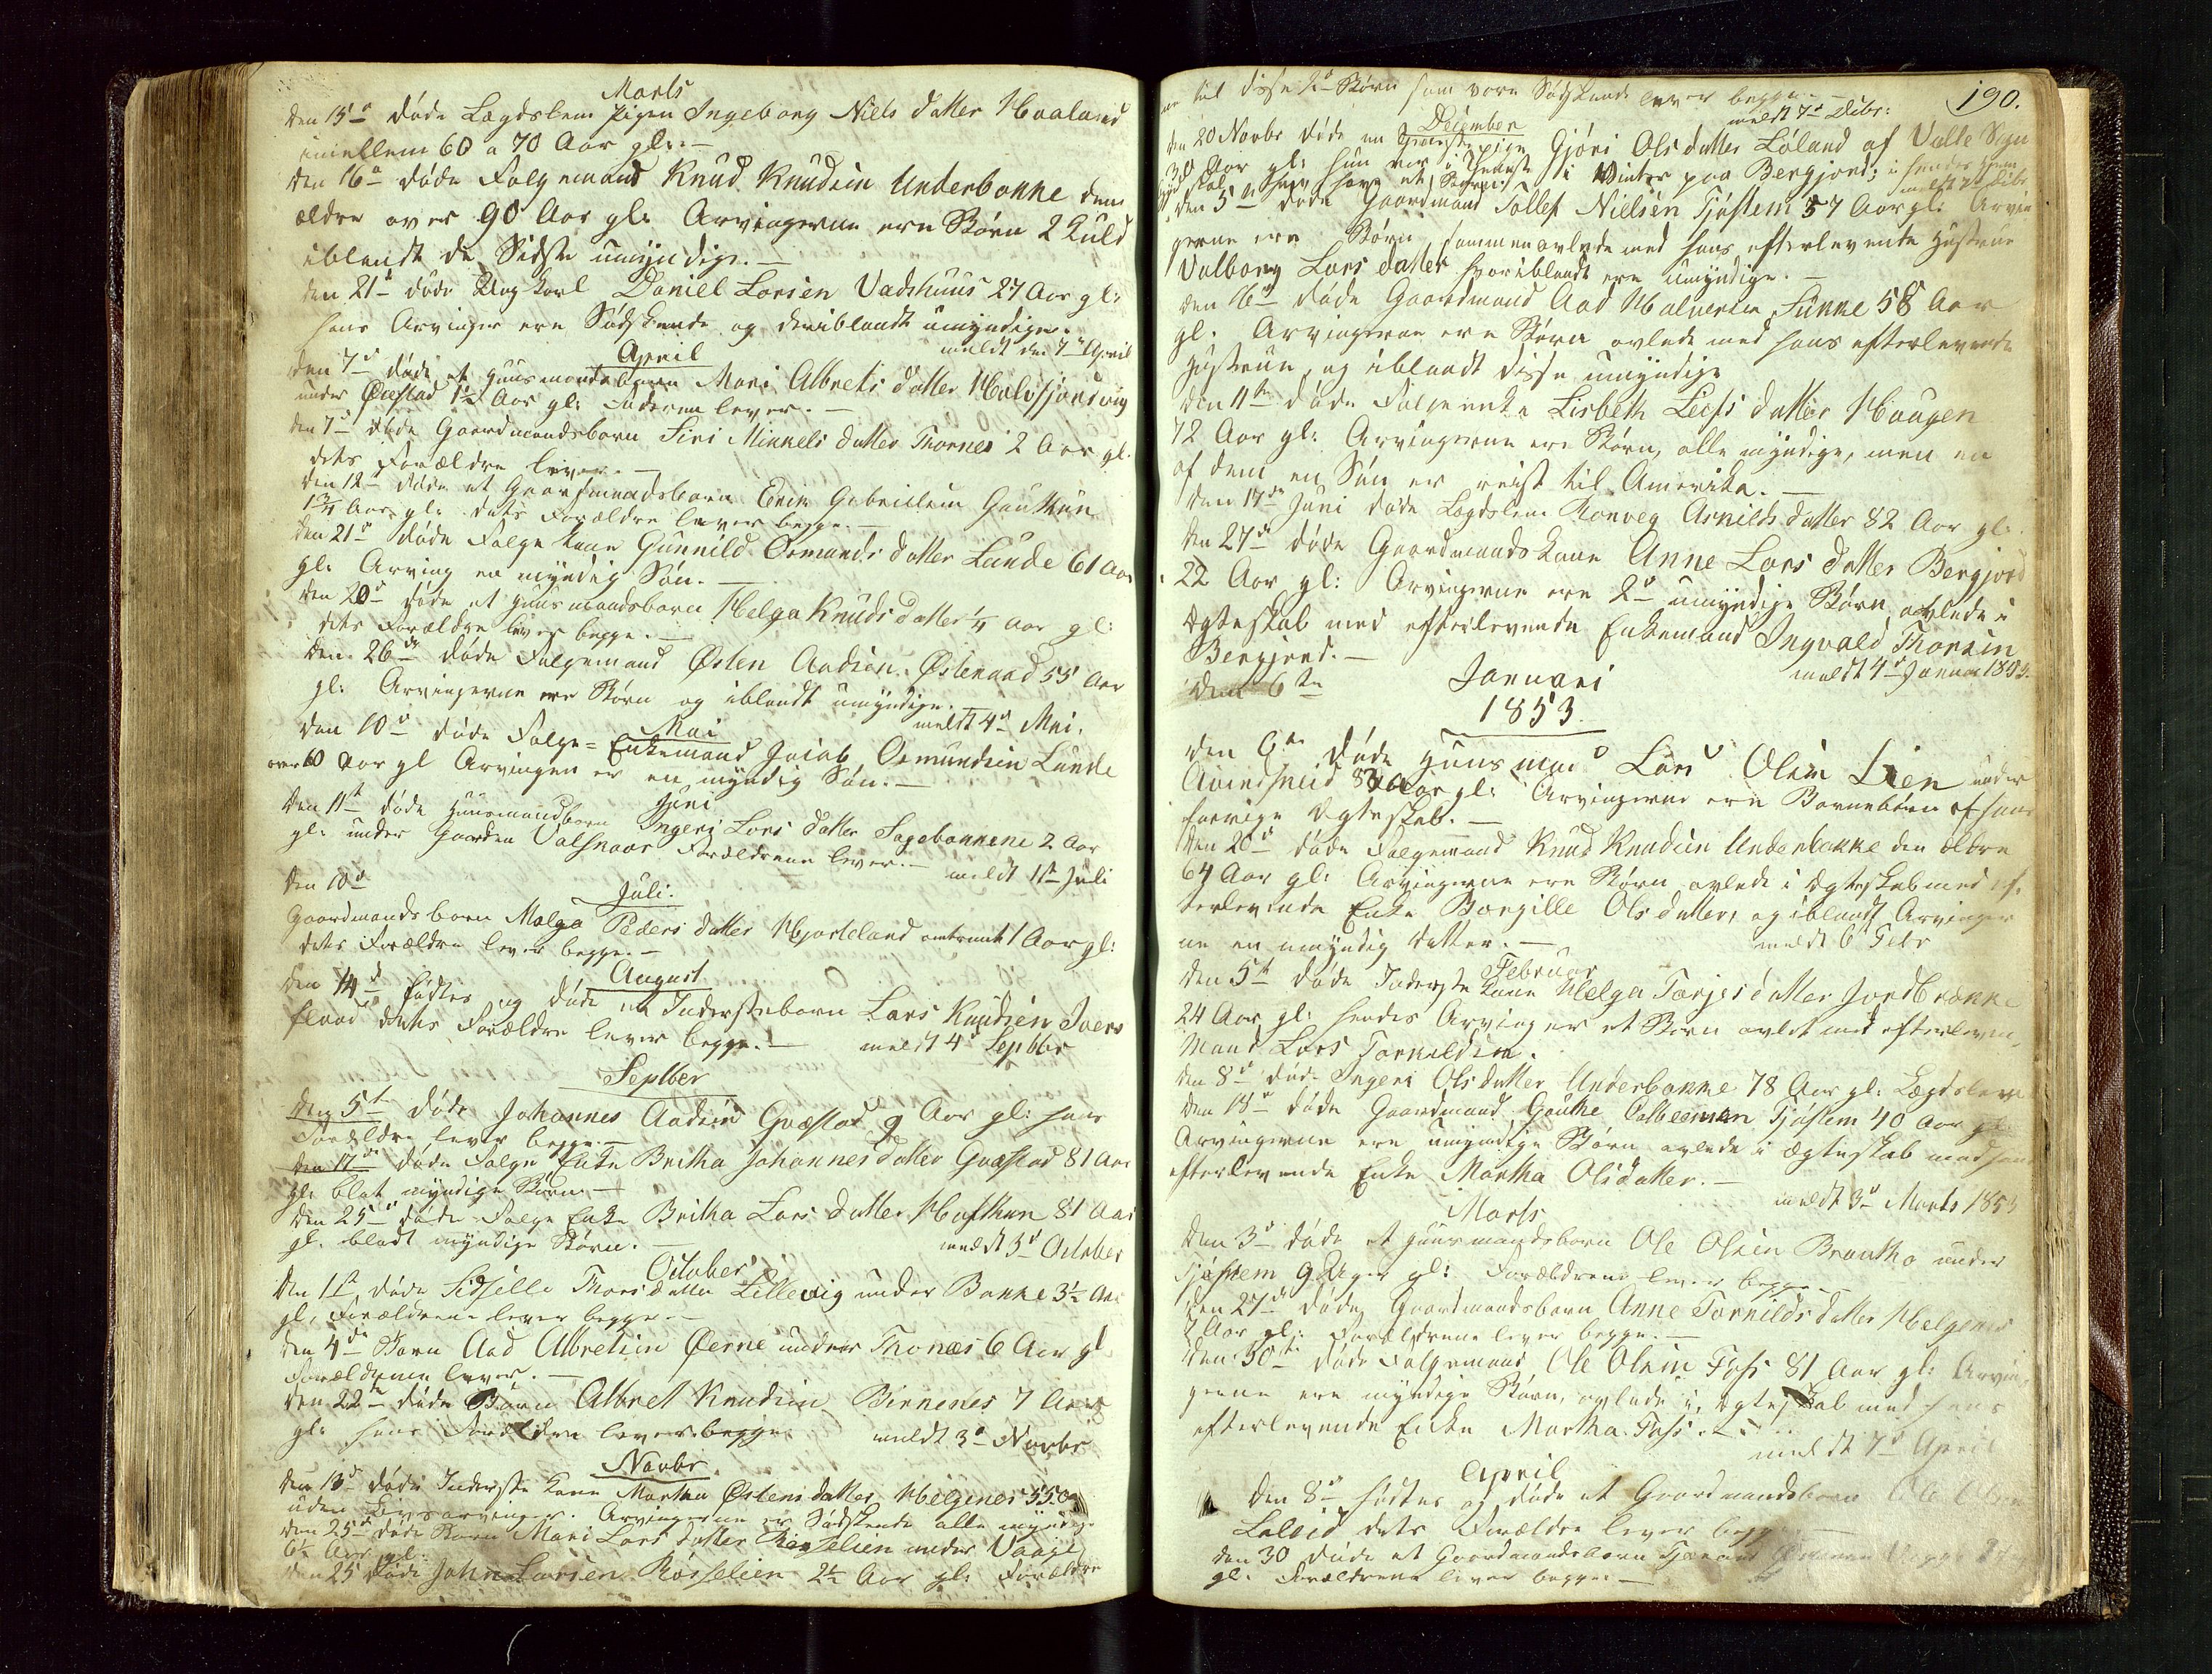 Marts
den 15d døde Lægdslem Pigen Ingeborg Niels datter Haaland
imellem 60 a 70 Aar gl: —
den 16d døde Folgemand Knud Knudsen Underbakke den
ældre over 90 Aar gl: Arvingerne ere Børn 2 Kuld
iblandt de Sidste umyndige. —
den 21d døde Ungkarl Daniel Larsen Vadshuus 27 Aar gl:
hans Arvinger ere Sødskende og deriblandt umyndige.
meldt den 7d April
April
den 7d døde et Huusmandsbarn Mari Albrets datter
under 1½ Aar gl: Faderen lever. —
den 7d døde Gaardmandsbarn Siri Mikkels datter Thornes 2 Aar gl.
dets Forældre lever. —
den 12d døde et Gaardmandsbarn Erik Gabrielsen Gautun
1¾ Aar gl: dets Forældre lever begge. —
den 21d døde Folgekone Gunnild Osmunds datter Lunde 61 Aar
gl: Arving en myndig Søn. —
den 20d døde et Huusmandsbarn Helga Knuds datter ¼ aar gl:
dets Forældre lever begge. —
den 26de døde Folgemand Østen Aadsen Østeraad 55 Aar
gl: Arvingerne ere Børn og iblandt umyndige. —
meldt 4d Mai.
Mai
den 10d døde Folge-Enkemand Jacob Osmundsen Lunde
over 60 Aar gl Arvingen er en myndig Søn. —
Juni
den 11te døde Huusmandbarn Ingeri Lars datter Sagebakkene 2 Aar
gl: under Gaarden Valsnaar Forældrene lever. —
meldt 1te Juli
Juli.
den 10d
Gaardmandsbarn Malga Peders datter Hjorteland omtrent 1 Aar gl:
dets Forældre lever begge. —
August
den 14d fødtes og døde et Inderstebarn Lars Knudsen
dets Forældre lever begge. — meldt 4d Septbr
Septber
den 5te døde Johannes Aadsen Gvæstad 9 Aar gl: hans
Forældre lever begge. —
den 17de døde Folge Enke Britha Johannes datter Gvæstad 81 Aar
gl: blot myndige Børn. —
den 25d døde Folge Enke Britha Lars datter Hafthun 81 Aar
gl. blodt myndige Børn. —
meldt 3d October
October
den 1te døde Sidselle Thors datter Lillevig under Bakke 3½ Aar
gl: Forældrene lever begge. —
den 4de Barn Aad Albretsen Øerne under Thornæs 6 Aar gl
Forældrene lever. —
den 22de døde Barn Albret Knudsen Birkenes 7 Aar
gl: hans Forældre lever begge meldt 3d Novbr
Novbr.
den 13d døde Inderste Kone Martha Østens datter Helgenes 55
uden Livsarvinger. Arvingerne er Sødskende alle myndige
den 25d døde Barn Mari Lars datter under Vaage
6½ Aar gl:
den 25 døde John Larsen Røsselien 2½ Aar gl: Forældre
190.
til disse 2d Børn som vare Sødskende lever begge. —
meldt 7d Dcbr:
December
den 20 Novbr døde en Gjøri Ols datter Løland af Valle Sogn
30 Aar gl: hun var i Tjeneste i Vinter paa Bergjord; i hendes
skal hun have et Barn.
den 5d døde Gaardmand Tollef Nielsen Tjøstem 57 Aar gl: Arvin
gerne ere Børn sammenavlede med hans efterlevende Hustrue
Valborg Lars datter, hvoriblandt ere umyndige. —
den 16d døde Gaardmand Aad Halversen Sunne 58 Aar
gl; Arvingerne ere Børn avlede med hans efterlevende
Hustrue, og iblandt disse umyndige
den 11te døde Folgeenke Lisbeth Leifs datter Haugen
72 Aar gl: Arvingerne ere Børn, alle myndige, men en
af dem en Søn er reist til Amerika. —
den 17de Juni døde Lægdslem Ronveg Asnilds datter 82 Aar gl:
den 27d døde Gaardmands Kone Anne Lars datter Bergjord
22 Aar gl: Arvingerne ere 2d umyndige Børn avlede i
Ægteskab med efterlevende Enkemand Ingvald Thorsen
Bergjord. —
meldt 4d Januar 1853.
den 6te
Januari
1853.
den 6te døde Huusmand Lars Olsen Lien under
Aar gl: Arvingerne ere Barnebørn af hans
forrige Ægteskab. —
den 20d døde Folgemand Knud Knudsen Underbakke den ældre
64 Aar gl: Arvingerne ere Børn avlede i Ægteskab med ef-
terlevende Enke Borgille Ols datter, og iblandt Arvinger
ne en umyndig datter. —
meldt 6 Febr
Februar
den 5te døde Inderste Kone Helga Tarjes datter Jordbrække
24 Aar gl: hendes Arvinger et Barn avlet med efterleven.
Mand Lars Tarkildsen.
den 8d døde Ingeri Ols datter Underbakke 78 Aar gl: Lægdslem
den 18d døde Gaardmand Gautke Tjøstem 40 Aar gl:
Arvingerne ere umyndige Børn avlede i Ægteskab med hans
efterlevende Enke Martha Olsdatter. —
meldt 3d Marts 1853
Marts
den 3d døde et Huusmandsbarn Ole Olsen Brautho under
Tjøstem 9 Uger gl: Forældrene lever begge —
den 27d døde Gaardmandsbarn Anne Tarkilds datter Helgenes
2 Aar gl: Forældrene lever begge. —
den 30te døde Folgemand Ole Olsen Foss 81 Aar gl: Arvin
gerne ere myndige Børn, avlede i Ægteskab med hans
efterlevende Enke Martha Foss. —
meldt 7d April
April
den 8d fødtes og døde et Gaardmandsbarn Ole
dets Forældre lever begge —
den 30 døde et Gaardmandsbarn
gl: Forældrene lever begge. —